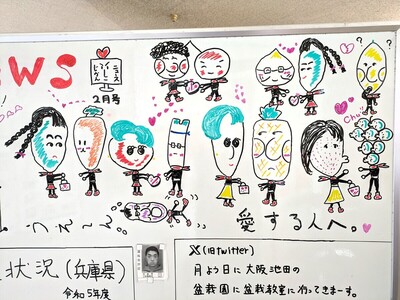 WS
ニュース
2月号
Chu
うぇ〜ん。
愛する人へ。
状況(兵庫県)
令和5年度
X(旧twitter)
月よう日に大阪池田の
盆栽園に盆栽教室に行ってきまーす。